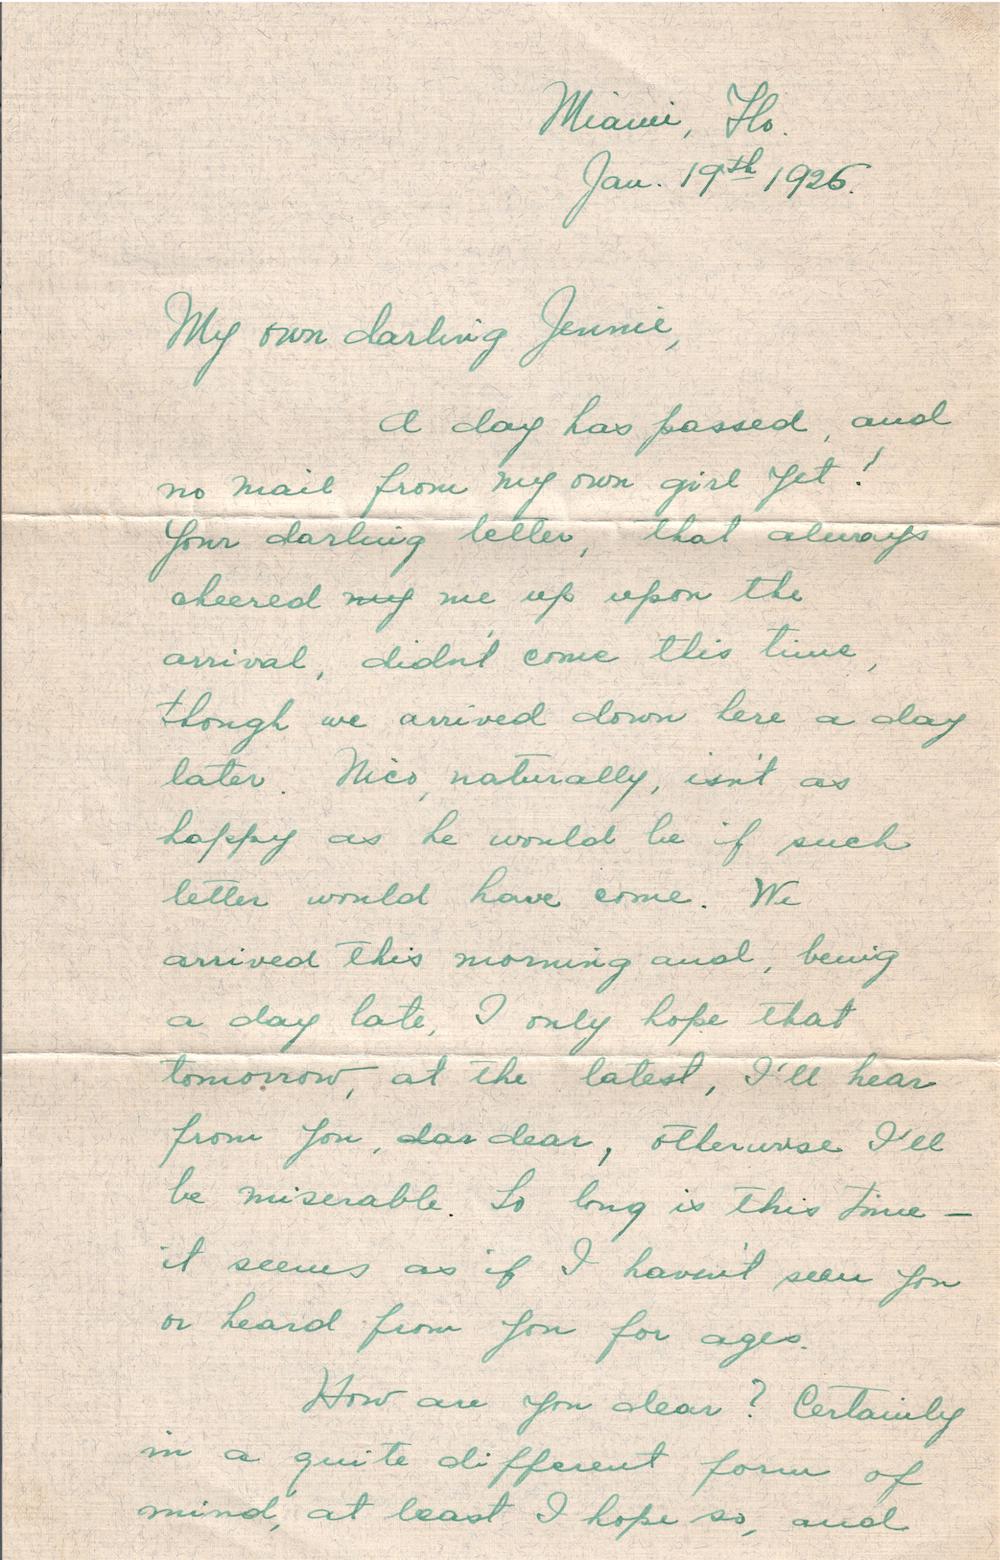 Miami, Fla.
Jan. 19th 1926.
My own darling Jennie,
A day has passed, and
no mail from my own girl yet!
Your darling letter, that always
cheered my me up upon the
arrival, didn't come this time,
though we arrived down here a day
later. Nico, naturally, isn't as
happy as he would be if such
letter would have come. We
arrived this morning and, being
a day late, I only hope that
tomorrow, at the latest, I'll hear
from you, dar dear, otherwise I'll
be miserable. So long is this time —
it seems as if I haven't seen you
or heard from you for ages.
How are you dear? Certainly
in a quite different form of
mind, at least I hope so, and